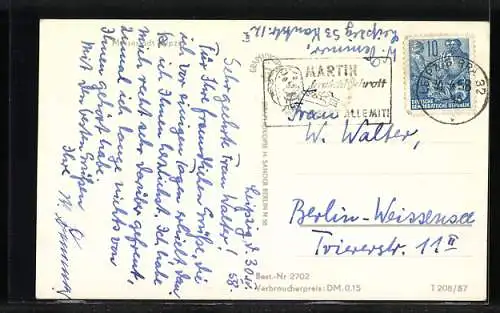 W. Demmer,
Leipzig S3 Kantstr. 12
10
DEUTSCHE
DEMOKRATISCHE REPUBLIK
32
MARTIN
ALLE MIT!
Frau
W. Walter,
Berlin-Weissensee
Trierer Str. 11 II
Leipzig, d. 30.
58.
Sehr geehrte Frau Walter!
Für Ihre freundlichen Grüße, die
ich vor einigen Tagen erhielt, danke
ich Ihnen herzlichst. Ich habe
mich recht sehr darüber gefreut,
zumal ich lange nichts von
Ihnen gehört habe.
Mit den besten Grüßen
Ihre W. Demmer
H. SANDER BERLIN N
Best.-Nr 2702
Verbraucherpreis: DM. 0,15
T 208/87